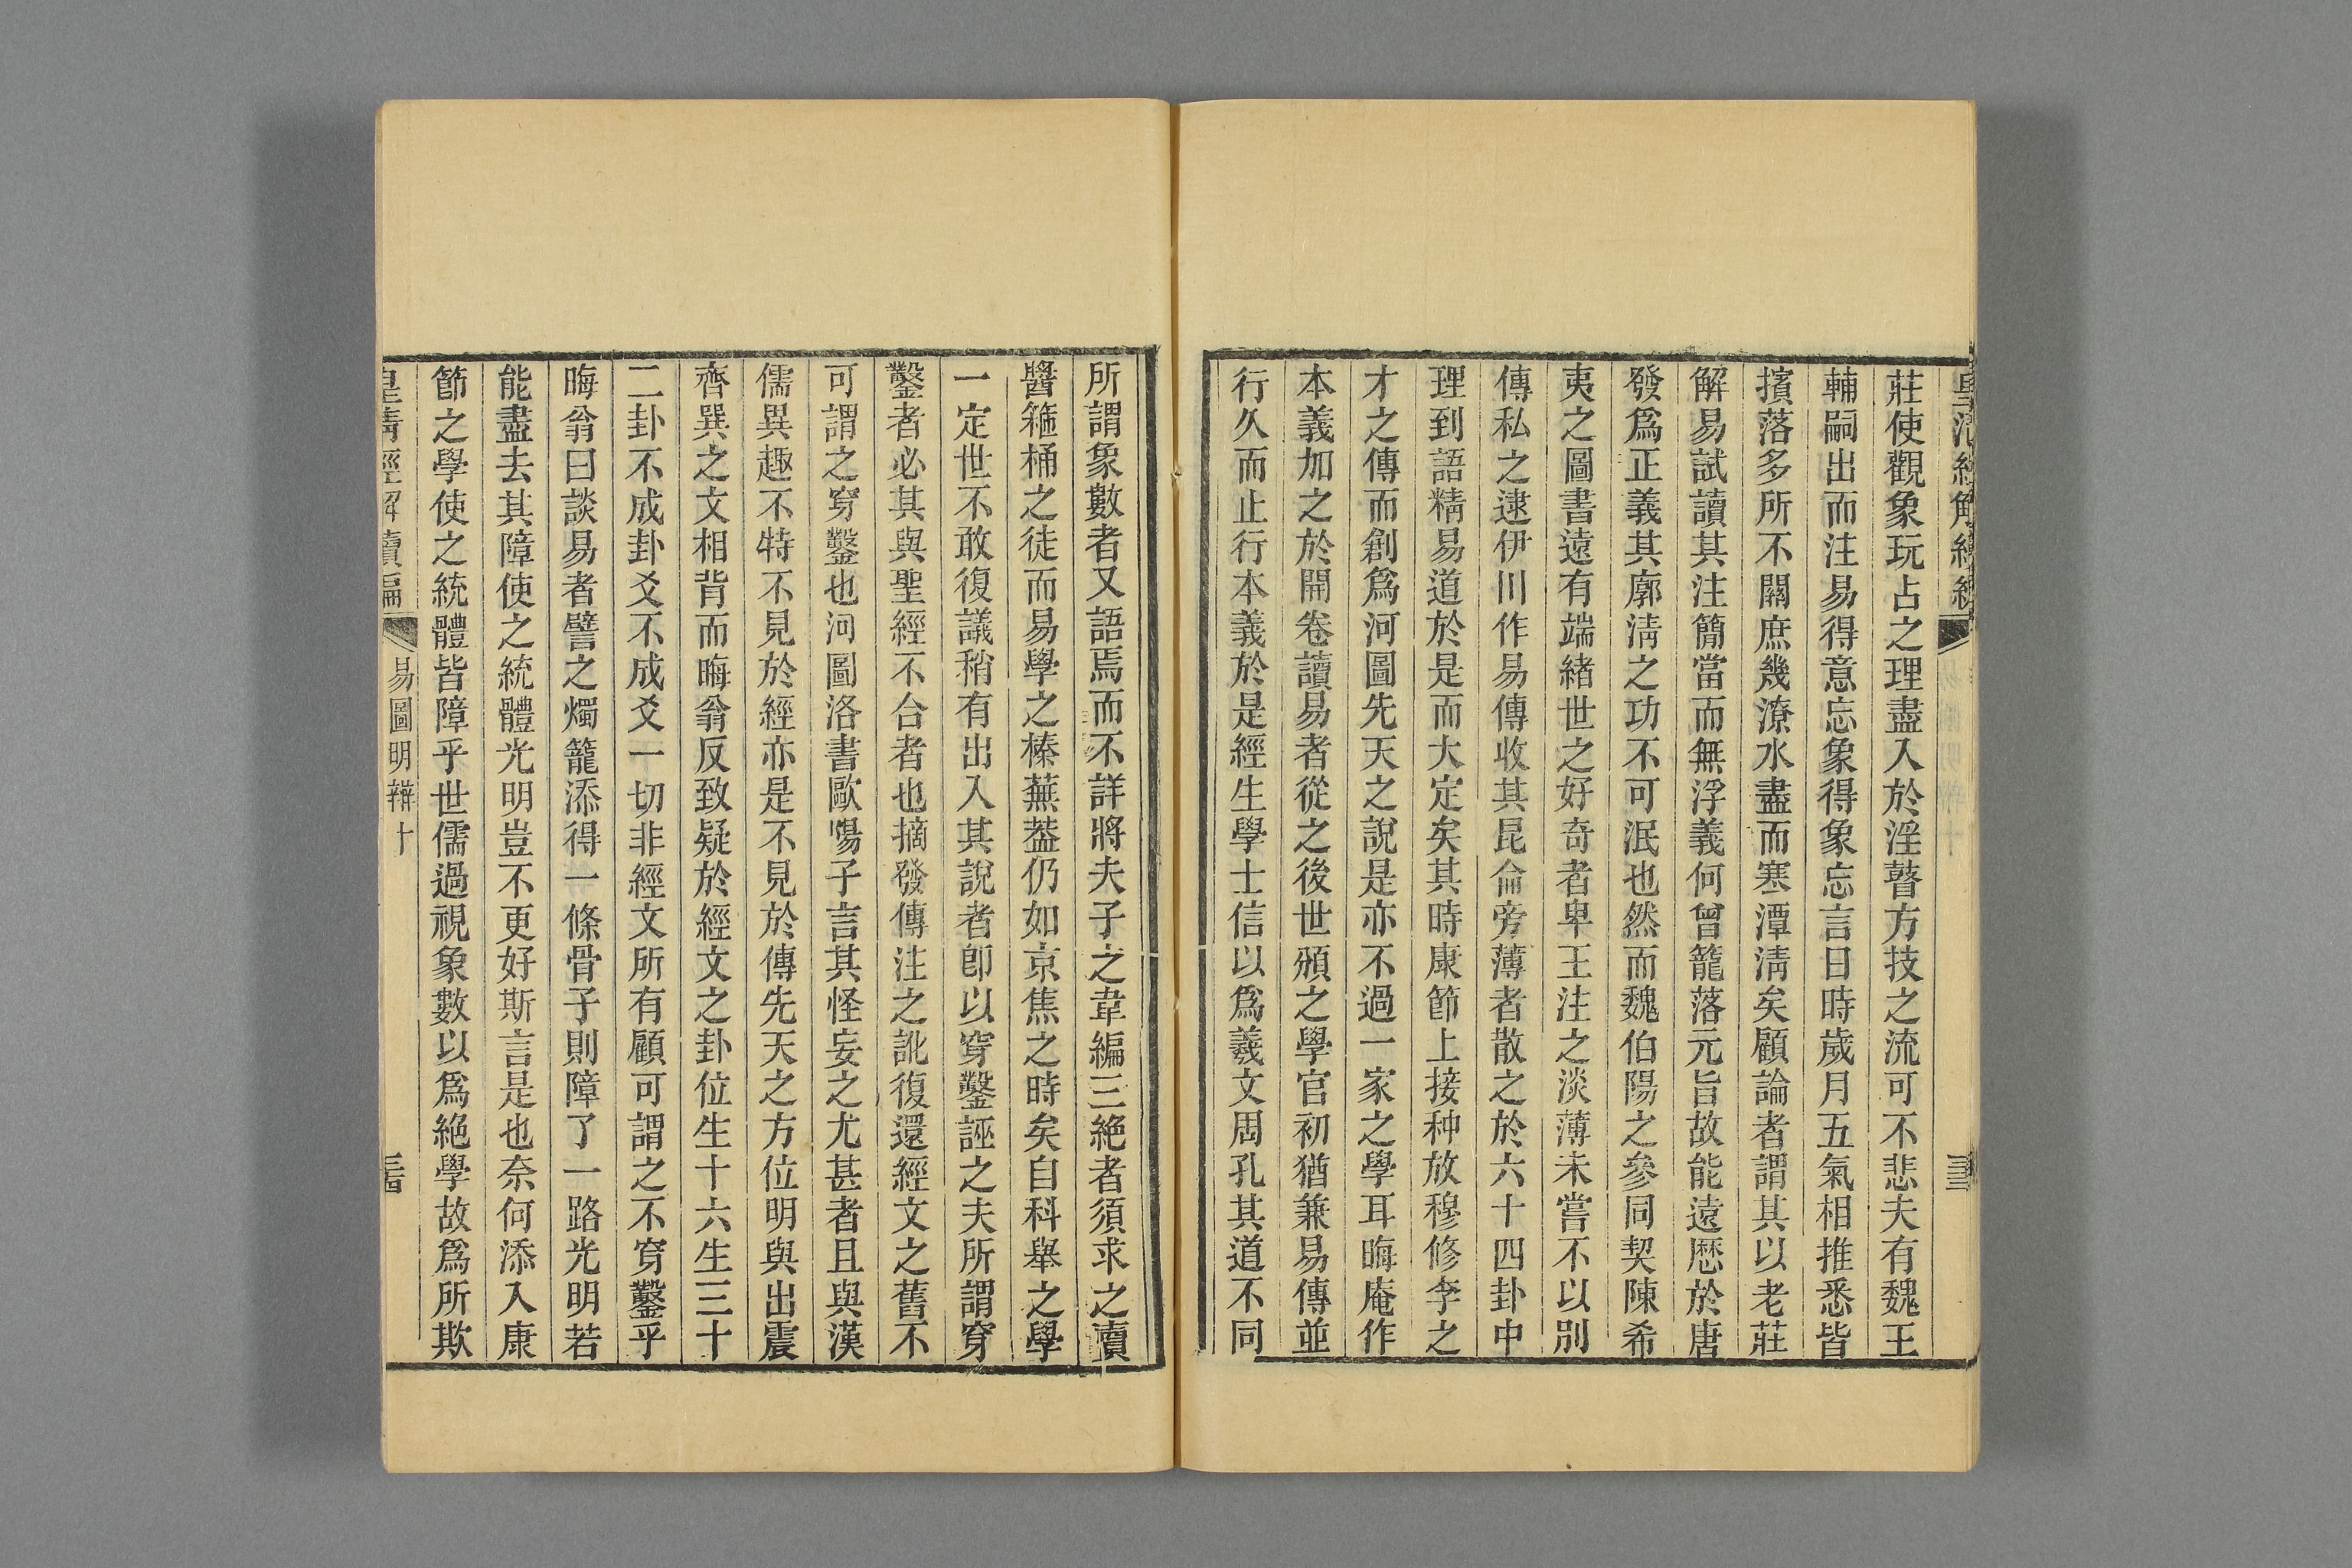 莊使觀象玩占之理盡入於淫瞽方技之流可不悲夫有魏王
輔嗣出而注易得意忘象得象忘言日時歲月五氣相推悉皆
擯落多所不關庶幾潦水盡而寒潭淸矣顧論者謂其以老莊
解易試讀其注簡當而無浮義何曾籠落元旨故能遠歷於唐
發爲正義其廓淸之功不可泯也然而魏伯陽之參同契陳希
夷之圖書遠有端緖世之好奇者卑王注之淡薄未嘗不以別
傳私之逮伊川作易傳收其昆侖旁薄者散之於六十四卦中
理到語精易道於是而大定矣其時康節上接种放穆修李之
才之傳而創爲河圖先天之說是亦不過一家之學耳晦庵作
本義加之於開卷讀易者從之後世頒之學官初猶兼易傳並
行久而止行本義於是經生學士信以爲羲文周孔其道不同
所謂象數者又語焉而不詳將夫子之韋編三絕者須求之賣
醬箍桶之徒而易學之榛蕪葢仍如京焦之時矣自科舉之學
一定世不敢復議稍有出入其說者卽以穿鑿誣之夫所謂穿
鑿者必其與聖經不合者也摘發傳注之訛復還經文之舊不
可謂之穿鑿也河圖洛書歐陽子言其怪妄之尤甚者且與漢
儒異趣不特不見於經亦是不見於傳先天之方位明與出震
齊巽之文相背而晦翁反致疑於經文之卦位生十六生三十
二卦不成卦爻不成爻一切非經文所有顧可謂之不穿鑿乎
晦翁曰談易者譬之燭籠添得一條骨子則障了一路光明若
能盡去其障使之統體光明豈不更好斯言是也奈何添入康
節之學使之統體皆障乎世儒過視象數以爲絕學故爲所欺
皇淸經解續編 易圖明辨十 三四